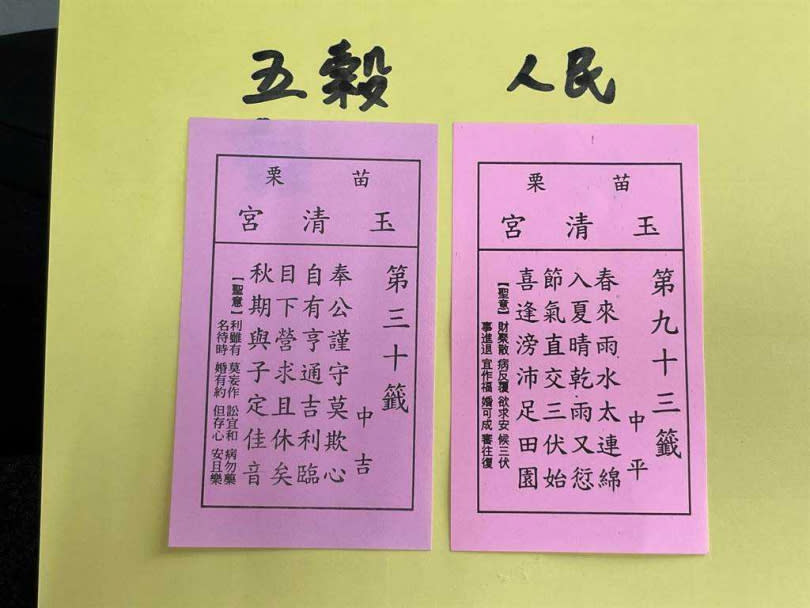 五穀
人民
苗栗
玉清宮
第三十籤
中吉
奉公謹守莫欺心
自有亨通吉利臨
目下營求且休矣
秋期與子定佳音
【聖意】利雖有 莫妄作 訟宜和 病勿藥
名待時 婚有約 但存心 安且樂
苗栗
玉清宮
第九十三籤
中平
春來雨水太連綿
入夏晴乾雨又愆
節氣直交三伏始
喜逢滂沛足田園
【聖意】財聚散 病反覆 欲求安 候三伏
事進退 宜作福 婚可成 審往復